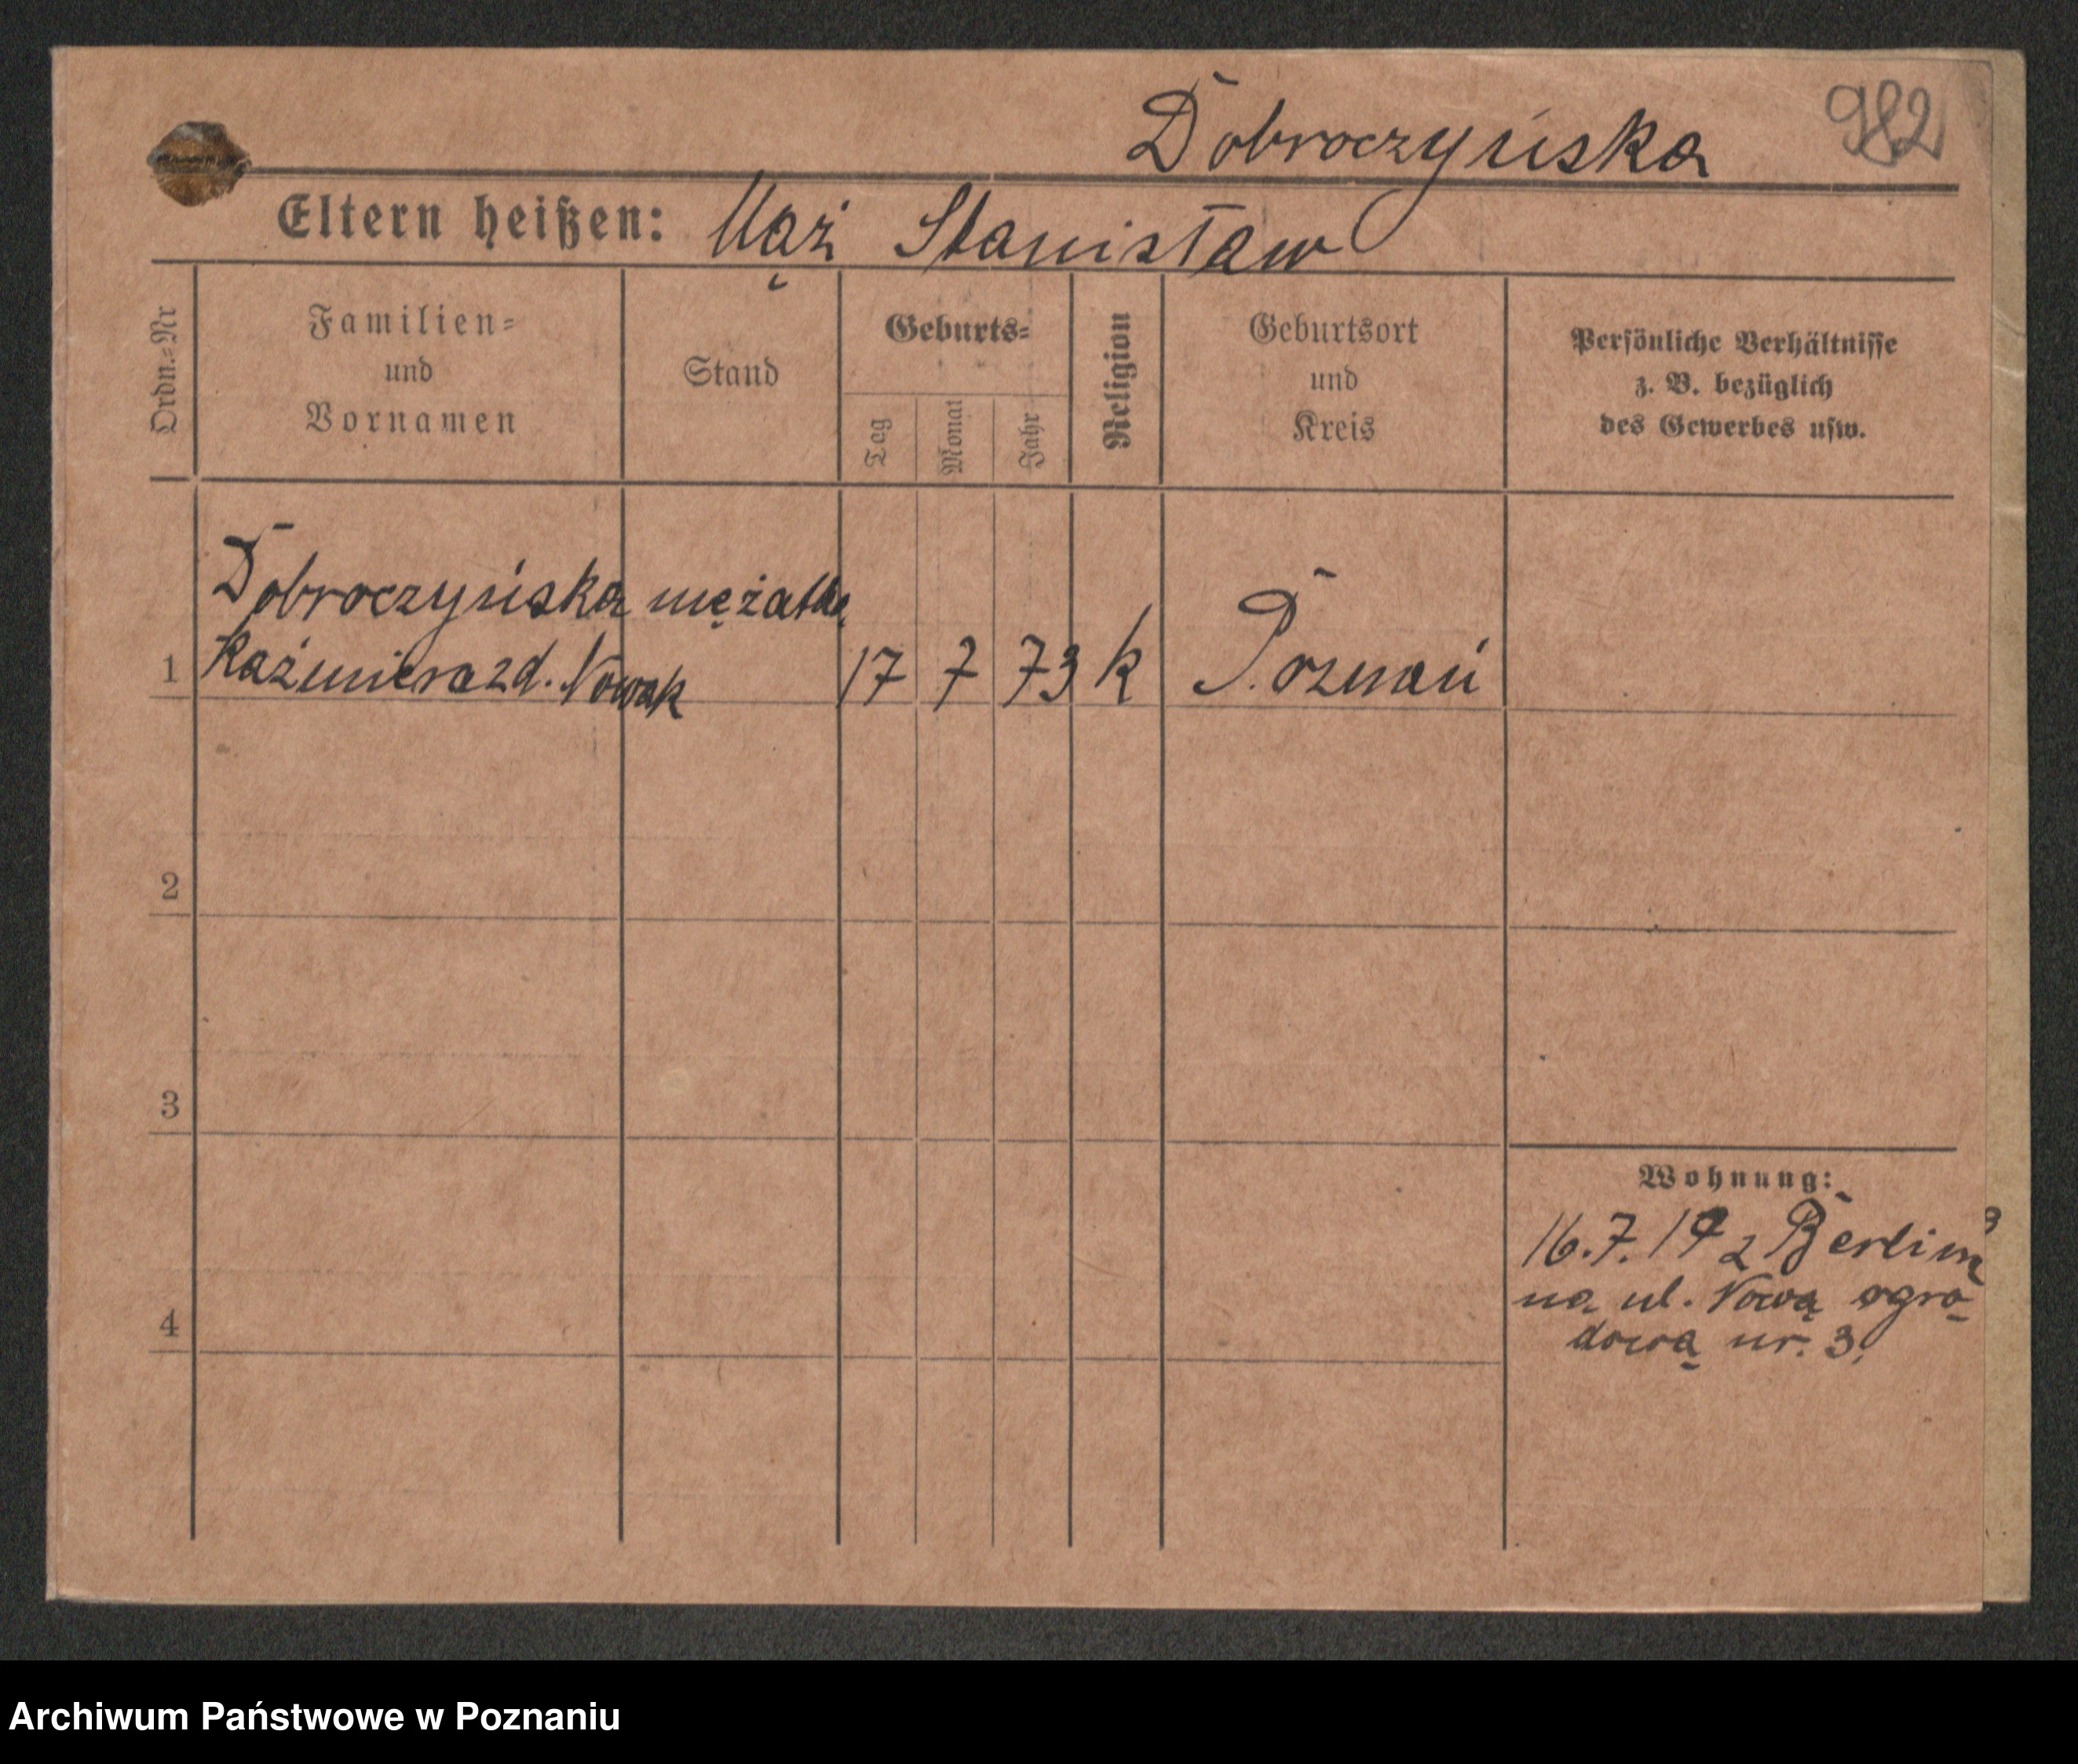 Dobroczyńska 982
Eltern heißen: Mąż Stanisław
Ordn.=Nr
Familien=
und
Vornamen
Stand
Geburts=
Tag
Monat
Jahr
Religion
Geburtsort
und
Kreis
Persönliche Verhältnisse
z. B. bezüglich
des Gewerbes usw.
Dobroczyńska mężatka
1 Kaźmiera zd. Nowak 17 7 73 k Poznań
2
3
4
Wohnung:
16.7.19 z Berlina
na ul. Nową ogro-
dową nr. 3.
Archiwum Państwowe w Poznaniu